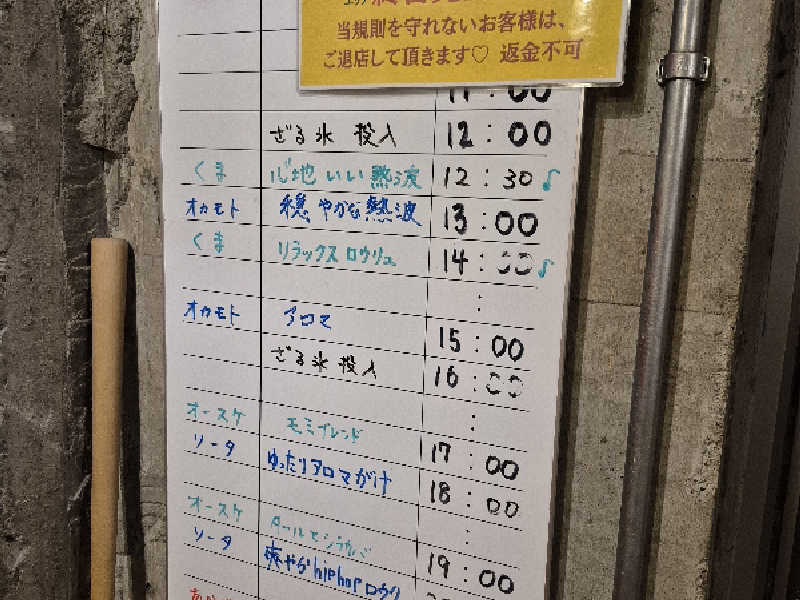 当規則を守れないお客様は、
ご退店して頂きます♡ 返金不可
11:00
ざる氷 投入 12:00
くま 心地いい熱波 12:30♪
オカモト 穏やかな熱波 13:00
くま リラックスロウリュ 14:00♪
:
オカモト アロマ 15:00
ざる氷 投入 16:00
:
オースケ モミブレンド 17:00
ソータ ゆったりアロマがけ 18:00
:
オースケ タールとシラカバ 19:00
ソータ 爽やかhiphopロウリ